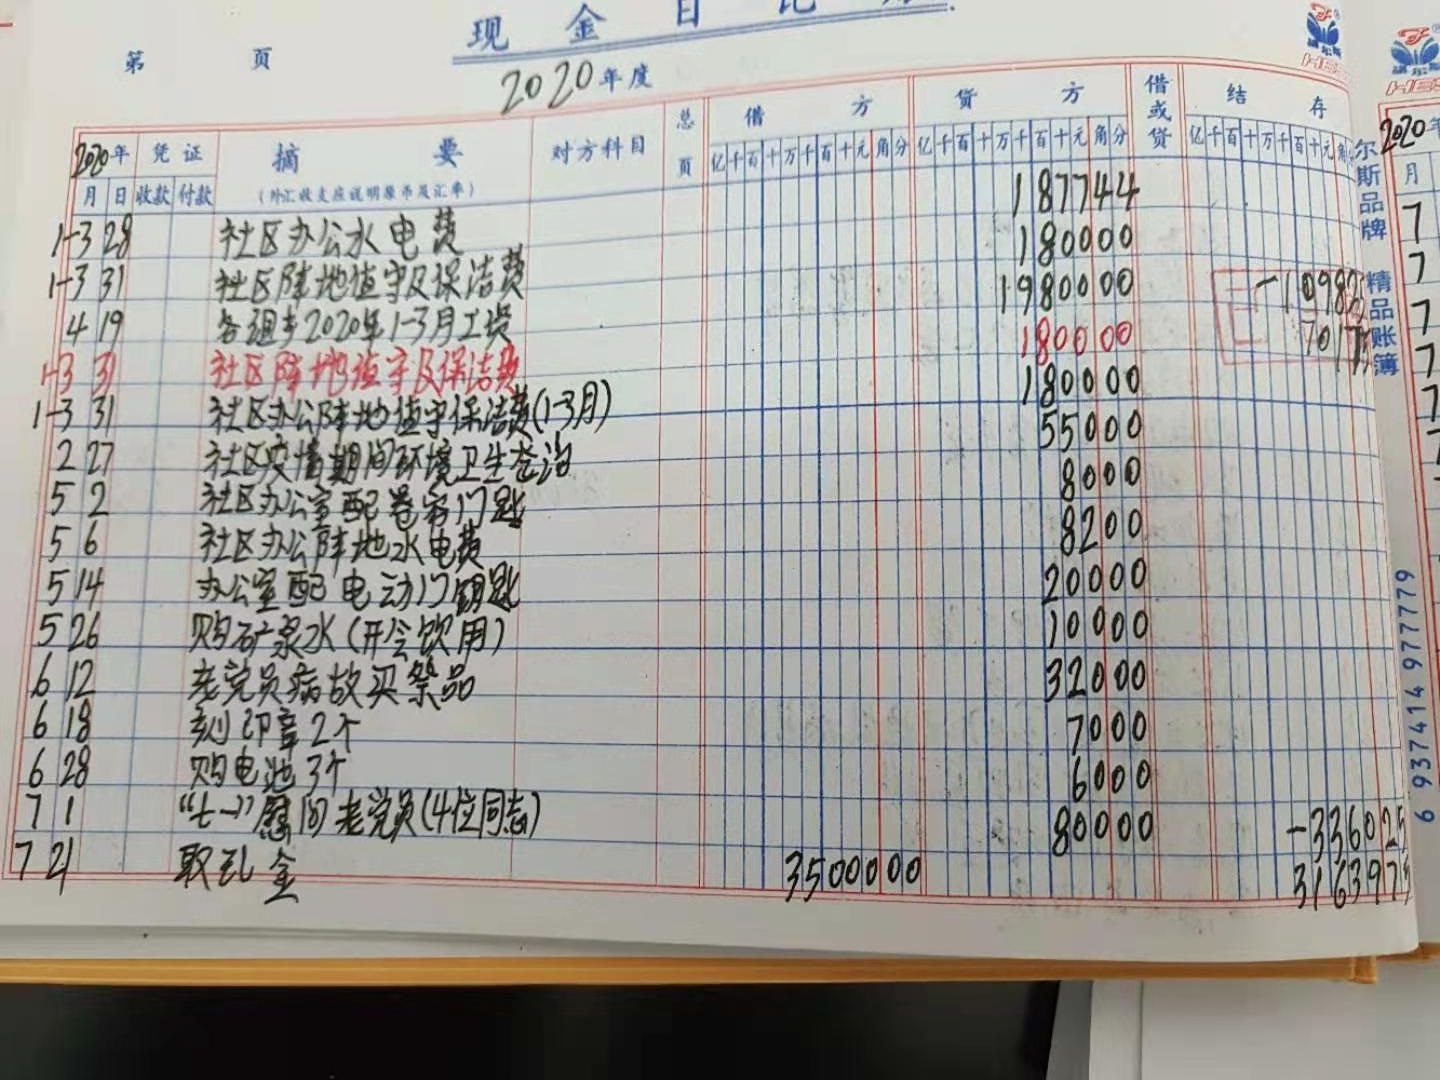 现 金 日 记
第 页
2020年度
2020年 凭证 摘 要 对方科目 总页 借 方 贷 方 借或贷 结 存
月 日 收款 付款 (外汇收支应说明原币及汇率) 亿千百十万千百十元角分 亿千百十万千百十元角分 亿千百十万千百十元角
1-3 28 社区办公水电费 187744
1-3 31 社区阵地值守及保洁费 180000
4 19 各组长2020年1-3月工资 1980000
1-3 31 社区阵地值守及保洁费 180000
1-3 31 社区办公阵地值守保洁费(1-3月) 180000
2 27 社区疫情期间环境卫生整治 55000
5 2 社区办公室配卷帘门匙 8000
5 6 社区办公阵地水电费 8200
5 14 办公室配电动门钥匙 20000
5 26 购矿泉水(开会饮用) 10000
6 12 老党员病故买祭品 32000
6 18 刻印章2个 7000
6 28 购电池3个 6000
7 1 “七一”慰问老党员(4位同志) 80000 -336025
7 21 取现金 3500000 3163975
尔斯品牌 精品账簿
6 937414 977779
2020年
月
7
7
7
7
7
7